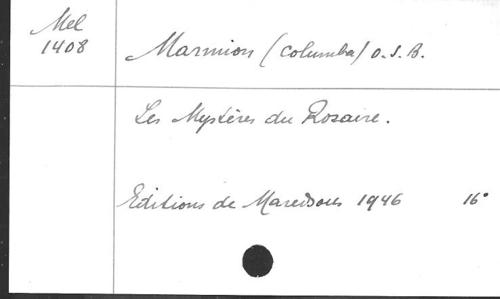 Mel
1408
Marmion (Columba) O.S.B.
Les Mystères du Rosaire.
Editions de Maredsous 1946 16°